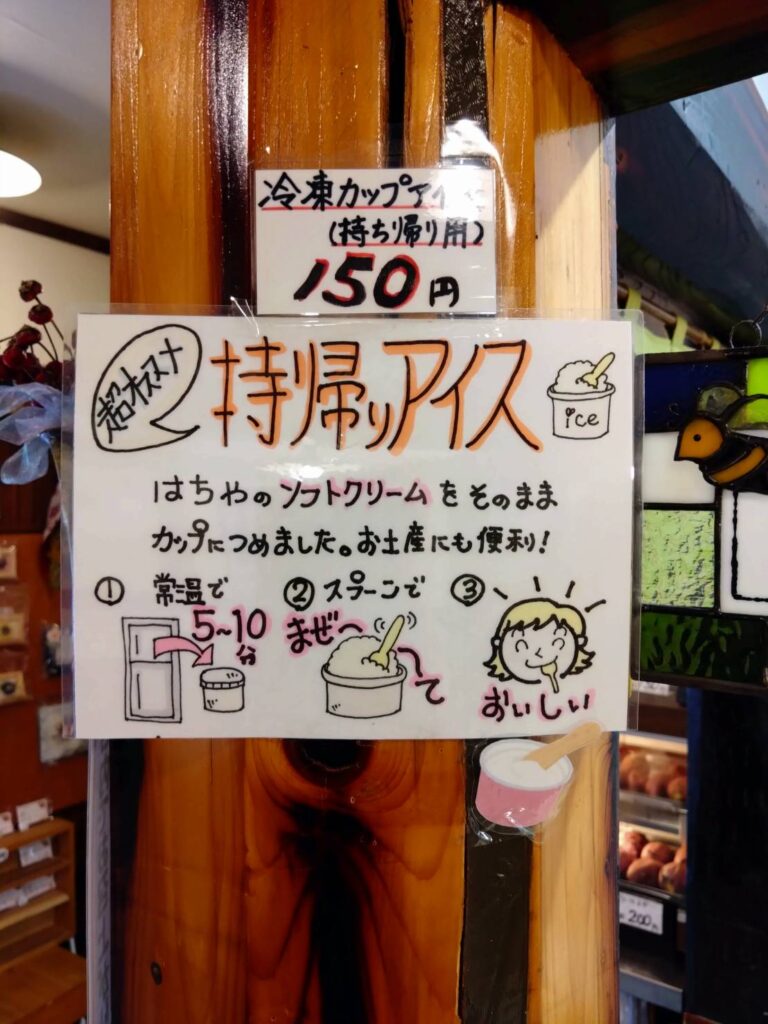 冷凍カップアイス
(持ち帰り用)
150円
超オススメ
持帰りアイス
ice
はちやのソフトクリームをそのまま
カップにつめました。お土産にも便利!
① 常温で
5~10
分
② スプーンで
まぜ~
~て
③
おいしい
200円